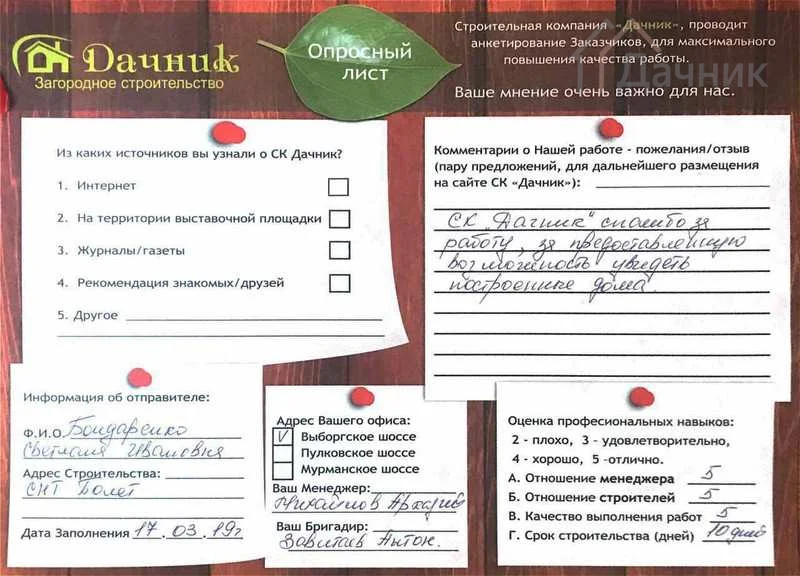 Дачник
Загородное строительство
Опросный
лист
Строительная компания «Дачник», проводит
анкетирование Заказчиков, для максимального
повышения качества работы.
Ваше мнение очень важно для нас.
Дачник
Из каких источников вы узнали о СК Дачник?
1. Интернет
2. На территории выставочной площадки
3. Журналы/газеты
4. Рекомендация знакомых/друзей
5. Другое
Комментарии о Нашей работе - пожелания/отзыв
(пару предложений, для дальнейшего размещения
на сайте СК «Дачник»):
СК "Дачник" спасибо за
работу, за предоставленную
возможность увидеть
построенные дома.
Информация об отправителе:
Ф.И.О. Бондаренко
Светлана Ивановна
Адрес Строительства:
СНТ Болет
Дата Заполнения 17.03.19г
Адрес Вашего офиса:
V Выборгское шоссе
Пулковское шоссе
Мурманское шоссе
Ваш Менеджер:
Михайлов Аркадий
Ваш Бригадир:
Завитаев Антон.
Оценка профессиональных навыков:
2 - плохо, 3 - удовлетворительно,
4 - хорошо, 5 -отлично.
А. Отношение менеджера 5
Б. Отношение строителей 5
В. Качество выполнения работ 5
Г. Срок строительства (дней) 10 дней